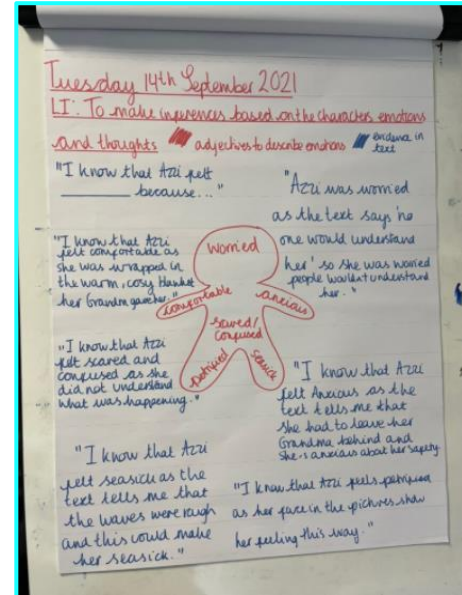 Tuesday 14th September 2021
LI: To make inferences based on the characters emotions
and thoughts adjectives to describe emotions evidence in
text
"I know that Azzi felt
______ because..."
"Azzi was worried
as the text says 'no
one would understand
her' so she was worried
people wouldn't understand
her."
"I know that Azzi
felt comfortable as
she was wrapped in
the warm, cosy blanket
her Grandma gave her."
worried
comfortable
anxious
scared/
confused
petrified
seasick
"I know that Azzi
felt scared and
confused as she
did not understand
what was happening."
"I know that Azzi
felt Anxious as the
text tells me that
she had to leave her
Grandma behind and
she is anxious about her safety."
"I know that Azzi
felt seasick as the
text tells me that
the waves were rough
and this could make
her seasick."
"I know that Azzi feels petrified
as her face in the pictures show
her feeling this way."